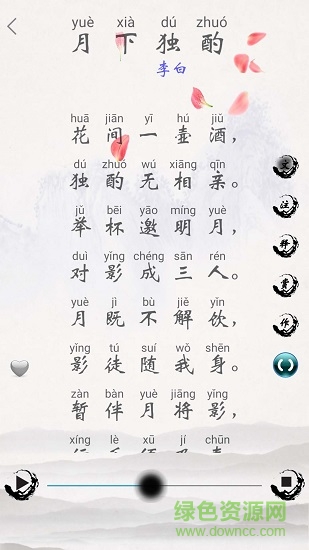 yuè xià dú zhuó
月下独酌
李白
huā jiān yī hú jiǔ
花间一壶酒，
dú zhuó wú xiāng qīn
独酌无相亲。
jǔ bēi yāo míng yuè
举杯邀明月，
duì yǐng chéng sān rén
对影成三人。
yuè jì bù jiě yǐn
月既不解饮，
yǐng tú suí wǒ shēn
影徒随我身。
zàn bàn yuè jiāng yǐng
暂伴月将影，
xíng lè xū jí chūn
文
注
释
赏
作
绿色资源网
www.downcc.com